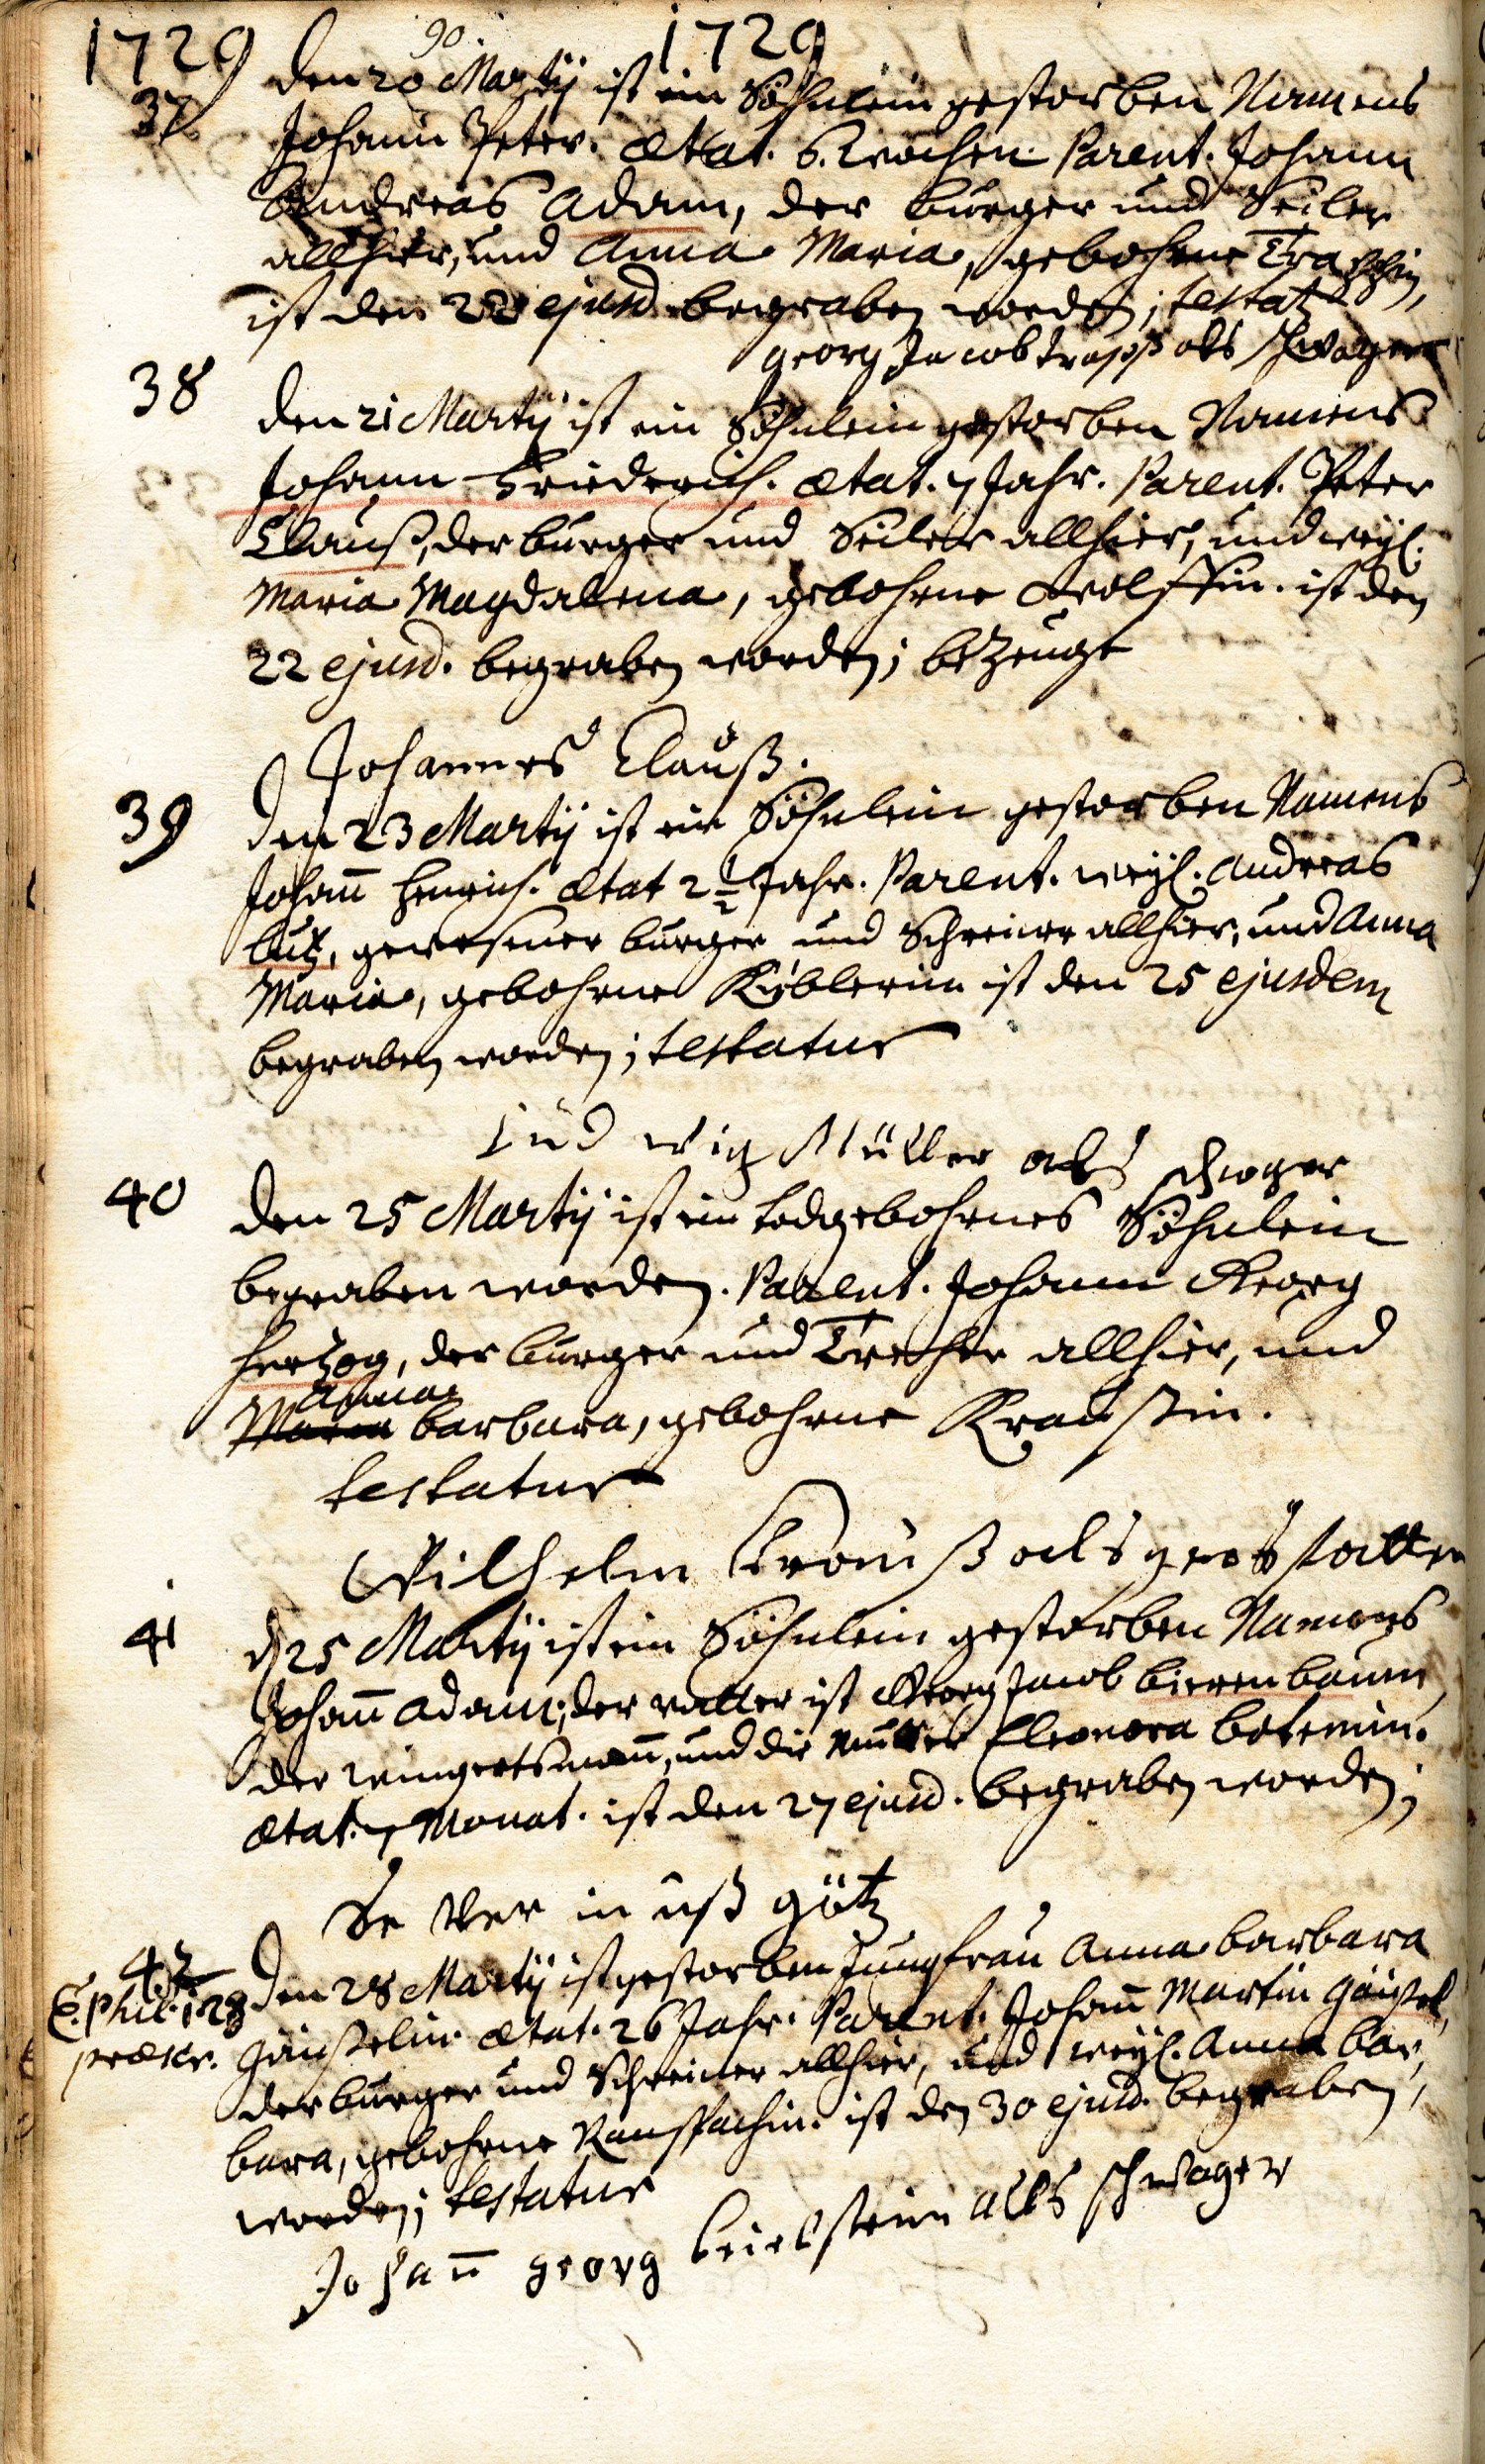 1729 90. 1729
37 den 20 Martij ist ein Söhnlein gestorben Namens
Johann Peter. ætat. 6. Wochen. Parent. Johann
Andreas Adam, der burger und Seiler
allhier, und Anna Maria, gebohrne
ist den 22 ejusd. begraben worden; testat.
georg Jacob trapp als schwager
38 den 21 Martij ist ein Söhnlein gestorben Namens
Johann Friederich. ætat. 7 Jahr. Parent. Peter
Clauß, der burger und Seiler allhier, und weyl.
Maria Magdalena, gebohrne Wolffin. ist den
22 ejusd. begraben worden; bezeugt
Johannes Clauß.
39 den 23 Martij ist ein Söhnlein gestorben Namens
Johañ Henrich. ætat 2 1/2 Jahr. Parent. weyl. Andreas
butz, gewesener burger und Schreiner allhier, und Anna
Maria, gebohrne Küblerin ist den 25 ejusdem
begraben worden; testatur
Lud wig Müller als schwager
40 den 25 Martij ist ein todgebohrnes Söhnlein
begraben worden. Parent. Johann Georg
Hertzog, der burger und Dreher allhier, und
Anna
Maria barbara, gebohrne Kraussin.
testatur
Wilhelm Krauß als gros vatter
41 d. 25 Martij ist ein Söhnlein gestorben Namens
Johañ Adam; der vatter ist Georg Jacob bierenbaum,
der wingertsmañ, und die Mutter Eleonora
ætat. 7 Monat. ist den 27 ejusd. begraben worden;
Se ver in uß götz
42 den 28 Martij ist gestorben Jungfrau Anna barbara
E. Phil. 1. 23 Gänßelin. ætat. 26 Jahr. Parent. Johañ Martin Gänßel,
der burger und Schreiner allhier, und weyl. Anna bar,
bara, gebohrne Ranspachin. ist den 30 ejusd. begraben,
worden; testatur
Johañ georg beilstein alls schwager